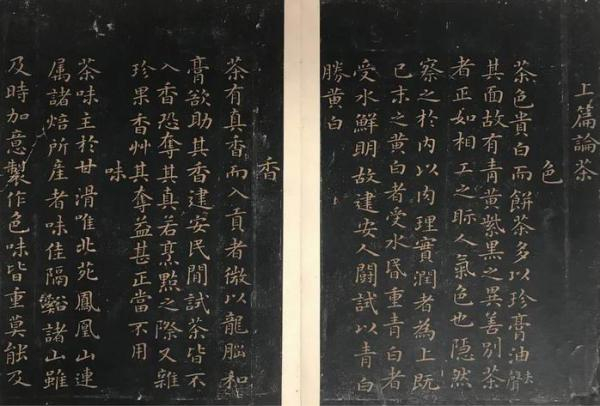 上篇論茶
色
茶色貴白而餅茶多以珍膏油去聲
其面故有青黃紫黑之異善別茶
者正如相工之眎人氣色也隱然
察之於內以肉理實潤者為上既
已末之黃白者受水昏重青白者
受水鮮明故建安人鬭試以青白
勝黃白
香
茶有真香而入貢者微以龍腦和
膏欲助其香建安民間試茶皆不
入香恐奪其真若烹點之際又雜
珍果香艸其奪益甚正當不用
味
茶味主於甘滑唯北苑鳳凰山連
属諸焙所產者味佳隔谿諸山雖
及時加意製作色味皆重莫能及